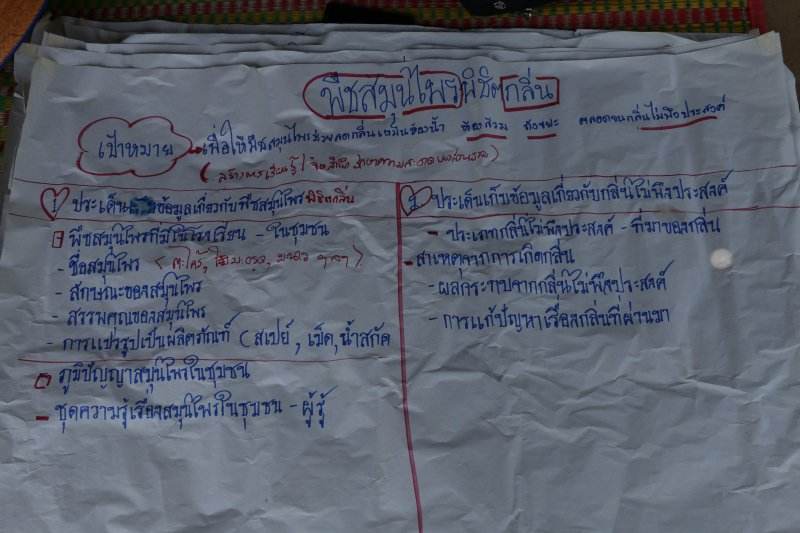 พืชสมุนไพรพิชิตกลิ่น
เป้าหมาย เพื่อให้พืชสมุนไพรช่วยลดกลิ่นเหม็นห้องน้ำ ห้องส้วม ถังขยะ ตลอดจนกลิ่นไม่พึงประสงค์
(สร้างการเรียนรู้ / จิตสำนึก รักษาความสะอาด ของส่วนรวม)
1 ประเด็นเก็บข้อมูลเกี่ยวกับพืชสมุนไพรพิชิตกลิ่น
พืชสมุนไพรที่มีในโรงเรียน - ในชุมชน
- ชื่อสมุนไพร (ตะไคร้, ใบมะกรูด, มะนาว ฯลฯ)
- ลักษณะของสมุนไพร
- สรรพคุณของสมุนไพร
- การแปรรูปเป็นผลิตภัณฑ์ (สเปย์, เม็ด, น้ำสกัด
ภูมิปัญญาสมุนไพรในชุมชน
- ชุดความรู้เรื่องสมุนไพรในชุมชน - ผู้รู้
2 ประเด็นเก็บข้อมูลเกี่ยวกับกลิ่นไม่พึงประสงค์
- ประเภทกลิ่นไม่พึงประสงค์ - ที่มาของกลิ่น
- สาเหตุจากการเกิดกลิ่น
- ผลกระทบจากกลิ่นไม่พึงประสงค์
- การแก้ปัญหาเรื่องกลิ่นที่ผ่านมา